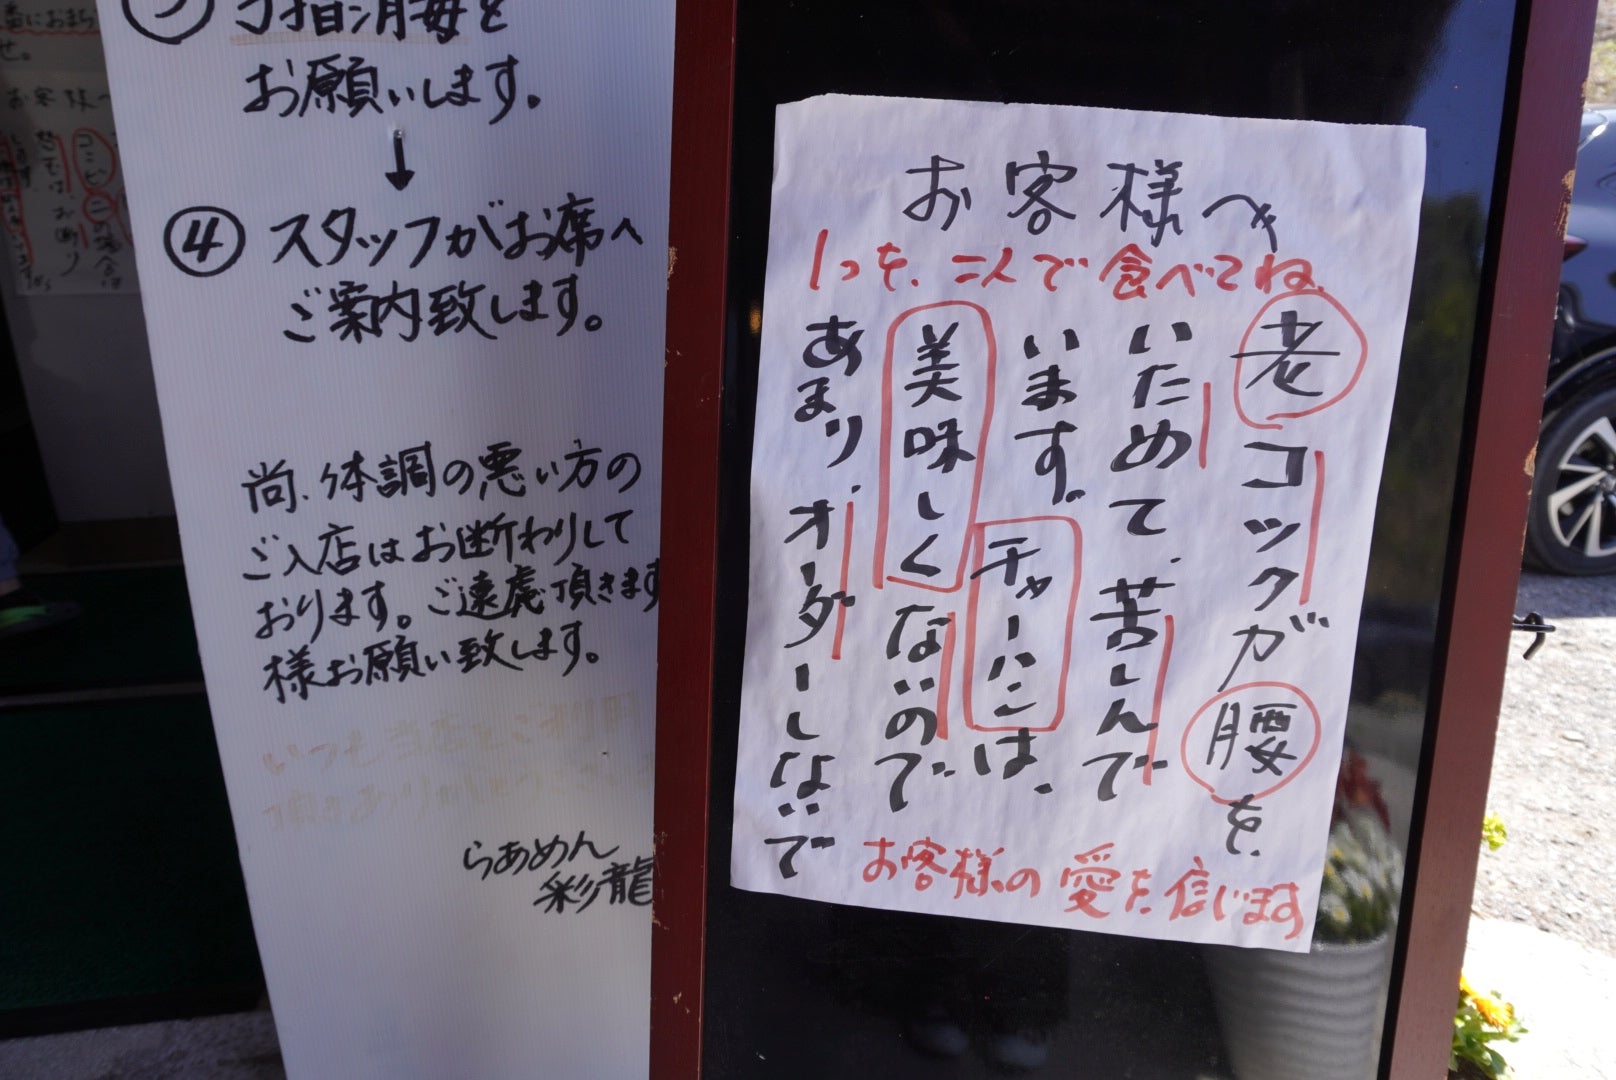 手指消毒を
お願いします。
↓
④ スタッフがお席へ
ご案内致します。
尚、体調の悪い方の
ご入店はお断わりして
おります。ご遠慮頂きます
様お願い致します。
いつも当店をご利用
頂きありがとう
らあめん
彩龍
お客様へ
1つを、二人で食べてね。
老コックが腰を、
いためて、苦しんで
います。チャーハンは、
美味しくないので
あまり、オーダーしないで
お客様の愛を信じます
お客様へ
コンビニの場合は